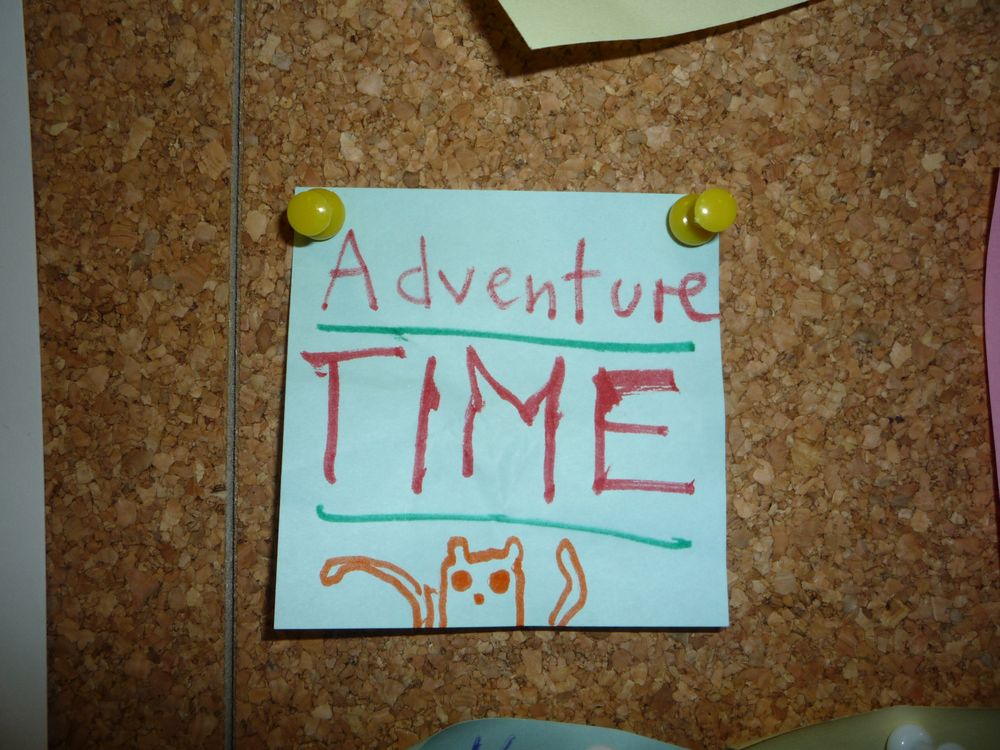 Adventure
TIME